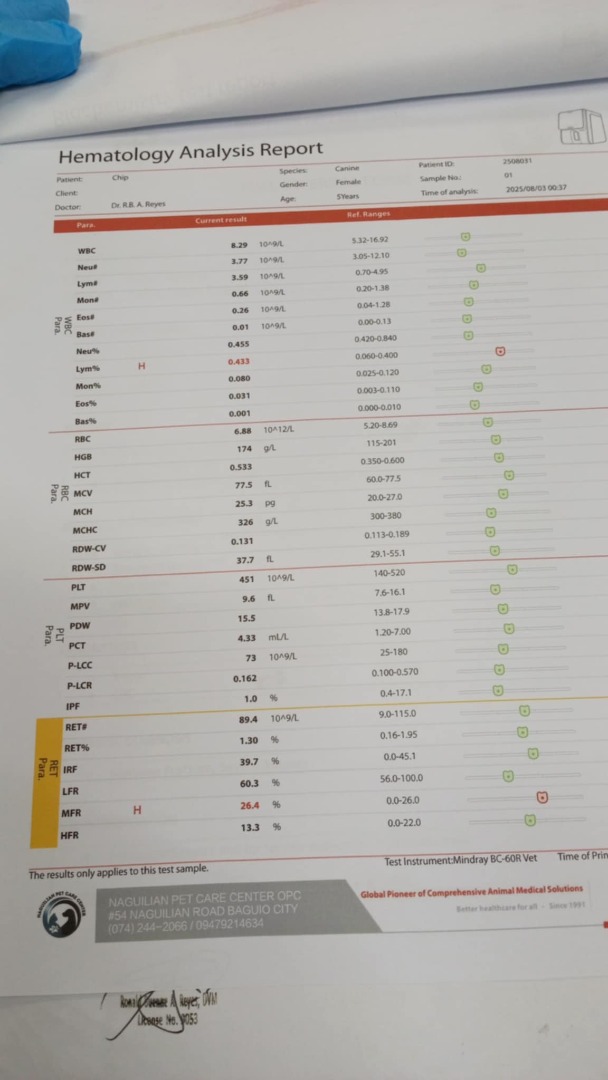 Hematology Analysis Report
Patient: Chip Species: Canine Patient ID: 2508031
Client: Gender: Female Sample No.: 01
Doctor: Dr. R.B. A. Reyes Age: 5Years Time of analysis: 2025/08/03 00:37
Para. Current result Ref. Ranges
WBC Para.
WBC 8.29 10^9/L 5.32-16.92
Neu# 3.77 10^9/L 3.05-12.10
Lym# 3.59 10^9/L 0.70-4.95
Mon# 0.66 10^9/L 0.20-1.38
Eos# 0.26 10^9/L 0.04-1.28
Bas# 0.01 10^9/L 0.00-0.13
Neu% 0.455 0.420-0.840
Lym% H 0.433 0.060-0.400
Mon% 0.080 0.025-0.120
Eos% 0.031 0.003-0.110
Bas% 0.001 0.000-0.010
RBC Para.
RBC 6.88 10^12/L 5.20-8.69
HGB 174 g/L 115-201
HCT 0.533 0.350-0.600
MCV 77.5 fL 60.0-77.5
MCH 25.3 pg 20.0-27.0
MCHC 326 g/L 300-380
RDW-CV 0.131 0.113-0.189
RDW-SD 37.7 fL 29.1-55.1
PLT Para.
PLT 451 10^9/L 140-520
MPV 9.6 fL 7.6-16.1
PDW 15.5 13.8-17.9
PCT 4.33 mL/L 1.20-7.00
P-LCC 73 10^9/L 25-180
P-LCR 0.162 0.100-0.570
IPF 1.0 % 0.4-17.1
RET Para.
RET# 89.4 10^9/L 9.0-115.0
RET% 1.30 % 0.16-1.95
IRF 39.7 % 0.0-45.1
LFR 60.3 % 56.0-100.0
MFR H 26.4 % 0.0-26.0
HFR 13.3 % 0.0-22.0
The results only applies to this test sample. Test Instrument:Mindray BC-60R Vet Time of Prin
NAGUILIAN PET CARE CENTER
NAGUILIAN PET CARE CENTER OPC
#54 NAGUILIAN ROAD BAGUIO CITY
(074) 244-2066 / 09479214634
Global Pioneer of Comprehensive Animal Medical Solutions
Better healthcare for all - Since 1991
A. Reyes, DVM
License No. 9053